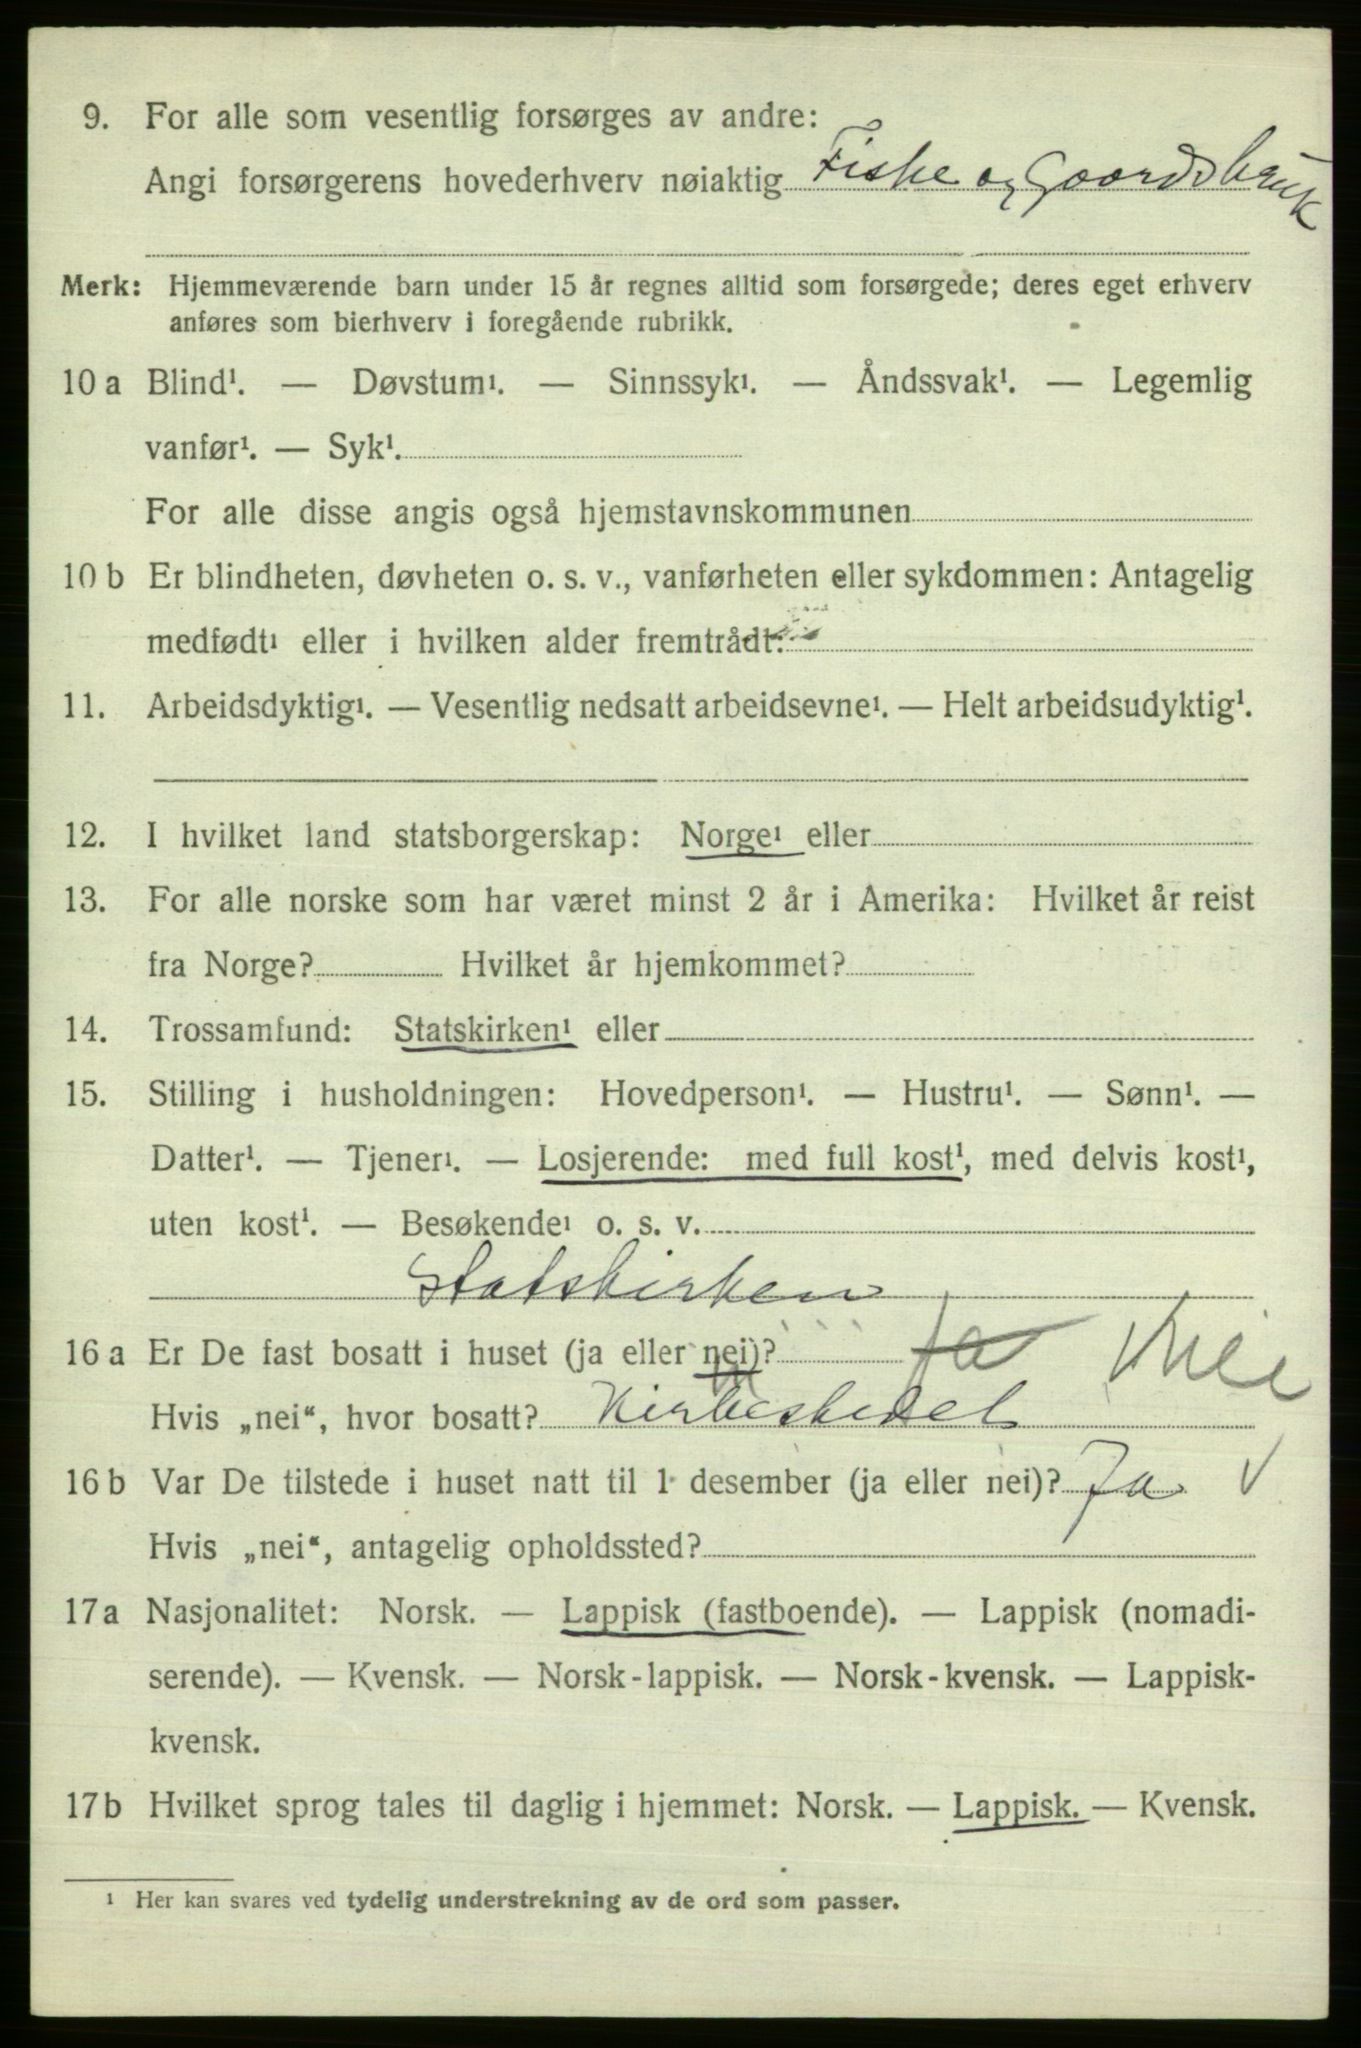 9. For alle som vesentlig forsørges av andre:
Angi forsørgerens hovederhverv nøiaktig Fiske og Gaardsbruk
Merk: Hjemmeværende barn under 15 år regnes alltid som forsørgede; deres eget erhverv
anføres som bierhverv i foregående rubrikk.
10 a Blind¹. — Døvstum¹. — Sinnssyk¹. — Åndssvak¹. — Legemlig
vanfør¹. — Syk¹.
For alle disse angis også hjemstavnskommunen
10 b Er blindheten, døvheten o. s. v., vanførheten eller sykdommen: Antagelig
medfødt¹ eller i hvilken alder fremtrådt:
11. Arbeidsdyktig¹. — Vesentlig nedsatt arbeidsevne¹. — Helt arbeidsudyktig¹.
12. I hvilket land statsborgerskap: Norge¹ eller
13. For alle norske som har været minst 2 år i Amerika: Hvilket år reist
fra Norge? Hvilket år hjemkommet?
14. Trossamfund: Statskirken¹ eller
15. Stilling i husholdningen: Hovedperson¹. — Hustru¹. — Sønn¹. —
Datter¹. — Tjener¹. — Losjerende: med full kost¹, med delvis kost¹,
uten kost¹. — Besøkende¹ o. s. v.
Statskirken
16 a Er De fast bosatt i huset (ja eller nei)? Ja Nei
Hvis „nei“, hvor bosatt?
16 b Var De tilstede i huset natt til 1 desember (ja eller nei)? Ja V
Hvis „nei“, antagelig opholdssted?
17 a Nasjonalitet: Norsk. — Lappisk (fastboende). — Lappisk (nomadi-
serende). — Kvensk. — Norsk-lappisk. — Norsk-kvensk. — Lappisk-
kvensk.
17 b Hvilket sprog tales til daglig i hjemmet: Norsk. — Lappisk. — Kvensk.
¹ Her kan svares ved tydelig understrekning av de ord som passer.